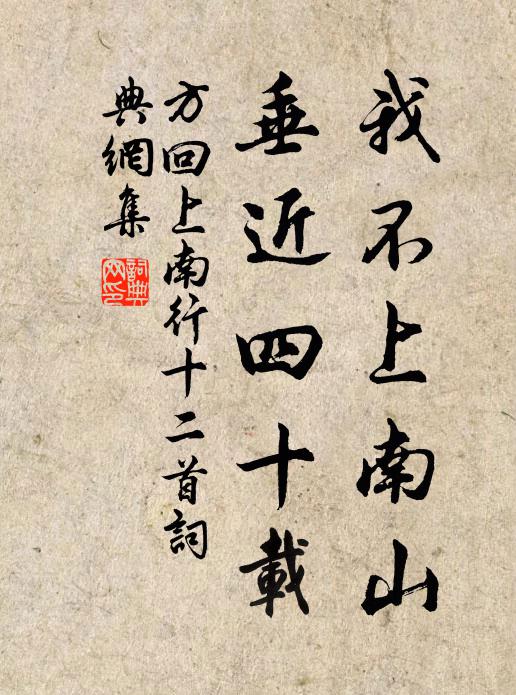 我不上南山
垂近四十載
方回上南行十二首詞
典網集
詞典網印